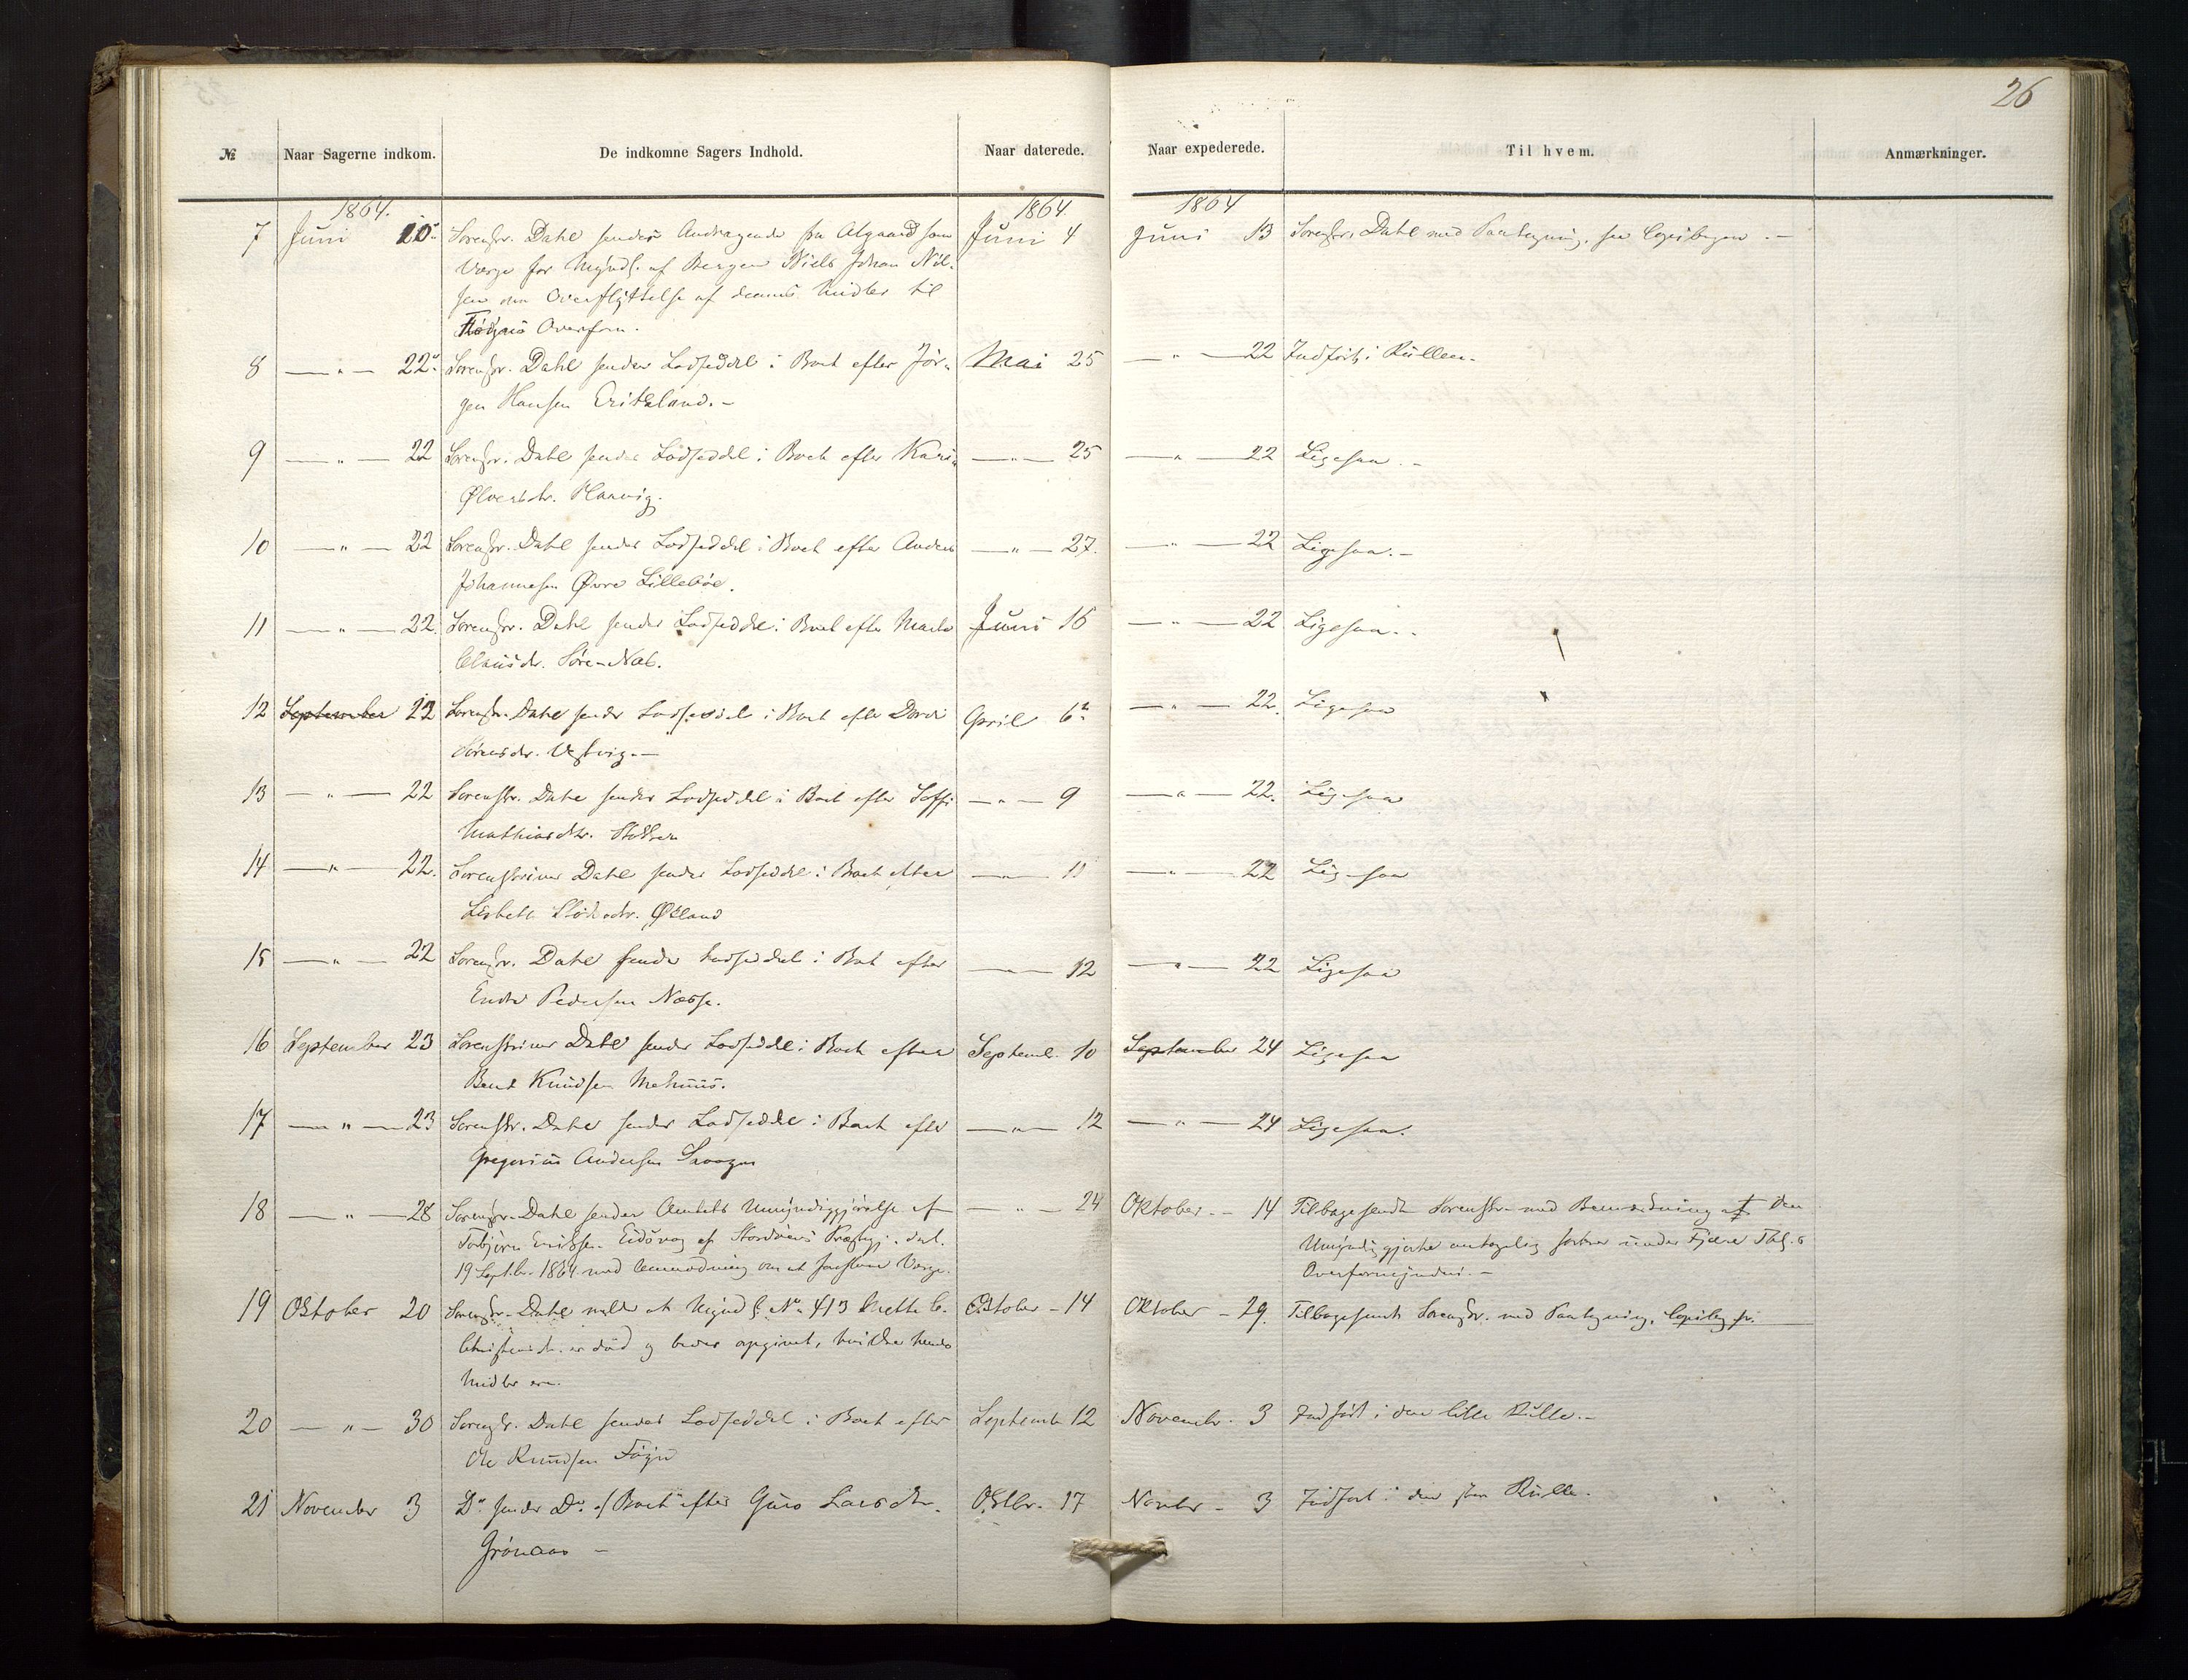 26
№ Naar Sagerne indkom. De indkomne Sagers Indhold. Naar daterede. Naar expederede. Til hvem. Anmærkninger.
1864. 1864. 1864
7 Juni 10 Sorenskr. Dahl sender Andragende fra Algaard som Juni 4 Juni 13 Sorenskr. Dahl med Paategning, se Copibogen.-
Værge for Myndl. af Bergen Niels Johan Niel-
sen om Overflyttelse af dennes Midler til
Overform.
8 — " — 22 Sorenskr. Dahl sender Lodseddel i Boet efter Jör- Mai 25 — " — 22 Indfört i Rullen.
gen Hansen Eritsland.-
9 — " — 22 Sorenskr. Dahl sender Lodseddel i Boet efter Kari — " — 25 — " — 22 Ligesaa.-
Ølversdtr. Haavig.
10 — " — 22 Sorenskr. Dahl sender Lodseddel i Boet efter Anders — " — 27. — " — 22 Ligesaa.-
Johannesen Øvre Lilleböe.
11 — " — 22. Sorenskr. Dahl sender Lodseddel i Boet efter Juni 16 — " — 22 Ligesaa..
Clausdtr. Söre-Næs.
12 September 22 Sorenskr. Dahl sender Lodseddel i Boet efter Dordi April 6 — " — 22. Ligesaa
Sörensdtr. Vestvig.—
13 — " — 22 Sorenskr. Dahl sender Lodseddel i Boet efter Soffi — " — 9 — " — 22. Ligesaa
Mathiasdtr. Stokken
14 — " — 22. Sorenskriver Dahl sender Lodseddel i Boet efter — " — 11 — " — 22 Ligesaa
Lisbeth Øeland
15 — " — 22 Sorenskr. Dahl sender Lodseddel i Boet efter — " — 12 — " — 22 Ligesaa
Endre Pedersen Næsse.
16 September 23 Sorenskriver Dahl sender Lodseddel i Boet efter Septemb. 10 September 24 Ligesaa
Bent Knudsen Mehuus.
17 — " — 23 Sorenskr. Dahl sender Lodseddel i Boet efter — " — 12 — " — 24 Ligesaa.
Gregorius Andersen
18 — " — 28 Sorenskr. Dahl sender Amtets Umyndiggjörelse af — " — 24 Oktober.- 14 Tilbagesendt Sorenskr. med Bemærkning at den
Torbjörn Eriksen Eidsvaag af Stordöens Præstgj. dat. Umyndiggjorte antagelig sorterer under Fjære Thgl.s
19 Septbr. 1864 med Anmodning om at foreslaae Værge. Overformynderi.-
19 Oktober 20 Sorenskr. Dahl melder at Myndl. No 413 Mette C. Oktober - 14 Oktober - 29. Tilbagesendt Sorenskr. med Paategning,
Christensdtr. er död og beder opgivet, hvilke hendes
Midler ere.
20 — " — 30 Sorenskr. Dahl sender Lodseddel i Boet efter Septemb. 12 Novembr. 3 Indfört i den lille Rulle.-
Ole Knudsen
21 November 3 Do sender Do i Boet efter Guro Larsdtr. Oktbr. 17 Novbr. - 3 Indfört i den Rulle.
Grönaas -